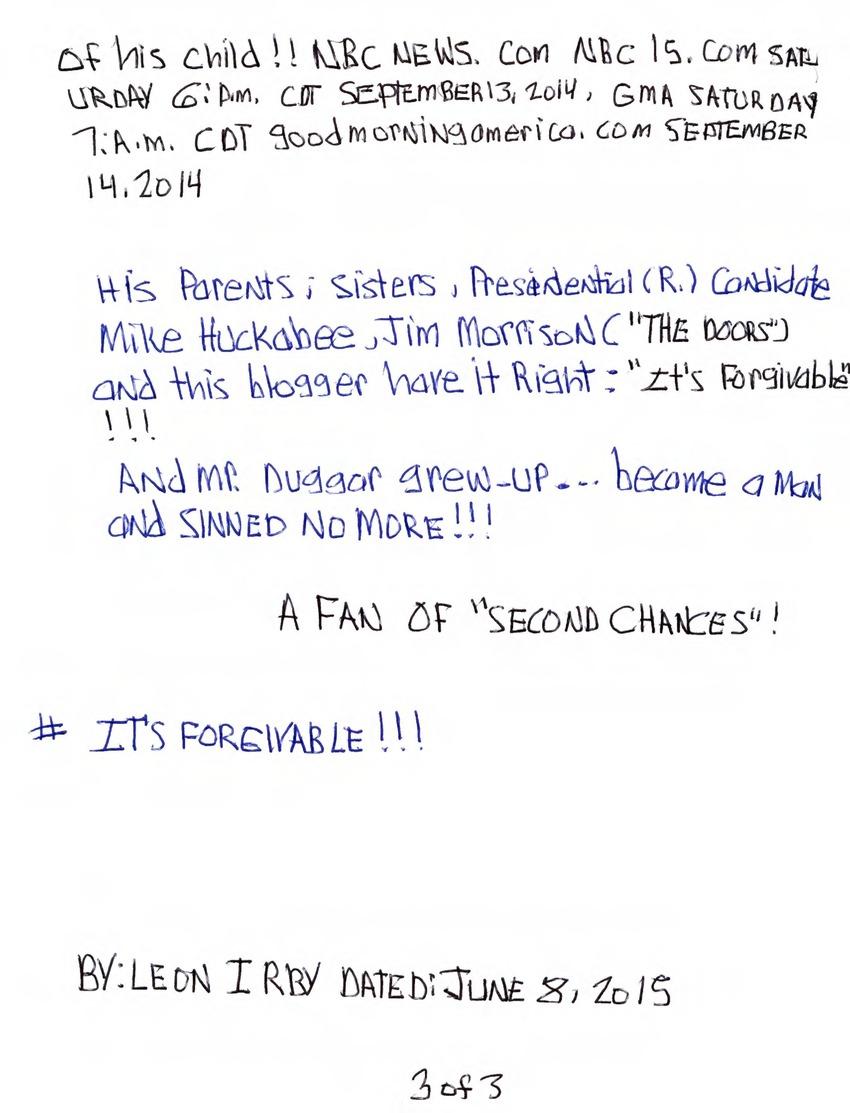 Of his child!! NBC NEWS. Com NBC 15. Com SAT
URDAY 6: A.m. CDT SEPTEMBER 13, 2014, GMA SATURDAY
7:A.m. CDT goodmorningamerica. com SEPTEMBER
14.2014
His Parents; Sisters, Presidential (R.) Candidate
Mike Huckabee, Jim Morrison ("THE DOORS")
and this blogger have it Right: "It's Forgivable"
!!!
And Mr. Duggar grew-UP... became a Man
and SINNED NO MORE!!!
A FAN OF "SECOND CHANCES"!
# IT'S FORGIVABLE!!!
BY: LEON IRBY DATED: JUNE 8, 2015
3 of 3